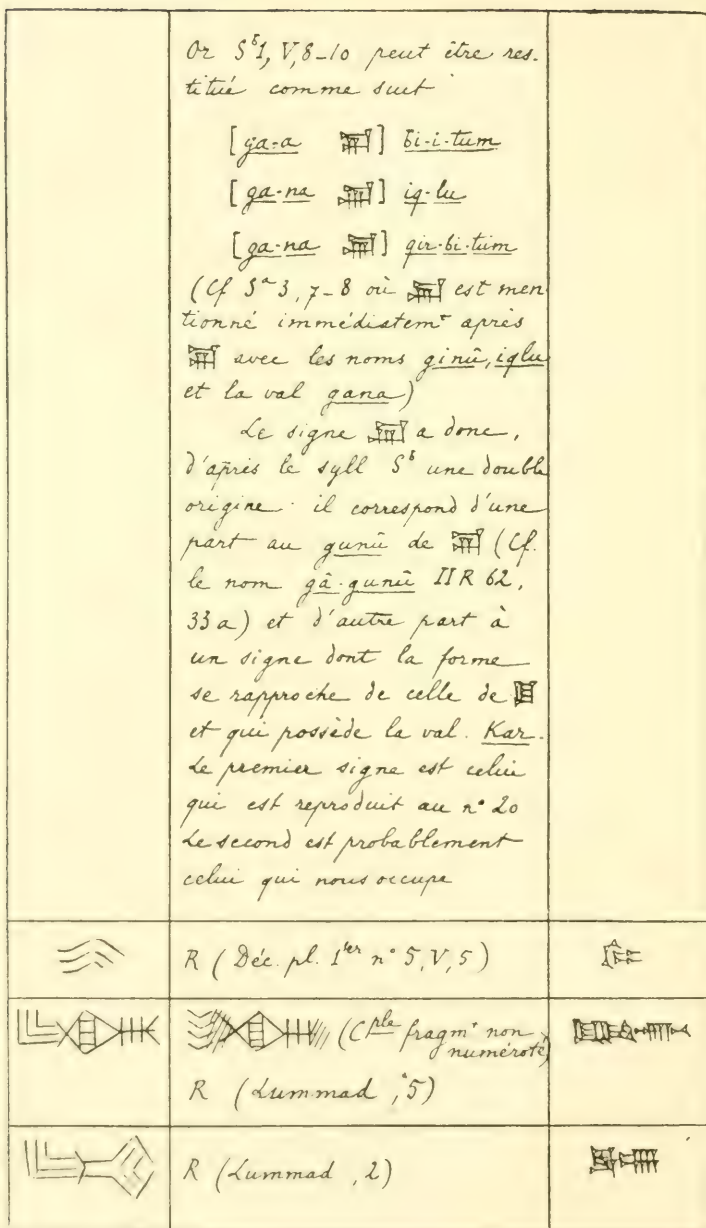 Or Sᵇ1, V, 8-10 peut être res-
titué comme suit
[ga-a 𒂷] bi-i-tum
[ga-na 𒃷] iq-lu
[ga-na 𒃷] qir-bi-tum
(Cf Sᵃ 3, 7-8 où 𒃷 est men
tionné immédiatemᵗ après
𒂷 avec les noms ginû, iqlu
et la val gana)
Le signe 𒃷 a donc,
d'après le syll Sᵇ une double
origine. il correspond d'une
part au gunû de 𒂷 (Cf.
le nom gâ-gunû II R 62,
33 a) et d'autre part à
un signe dont la forme
se rapproche de celle de
et qui possède la val. Kar.
Le premier signe est celui
qui est reproduit au n° 20
Le second est probablement
celui qui nous occupe
R (Déc. pl. 1ᵉʳ n° 5, V, 5)
(Cᵖˡᵉ fragmᵗ non
numéroté)
R (Lummad, 5)
R (Lummad, 2)